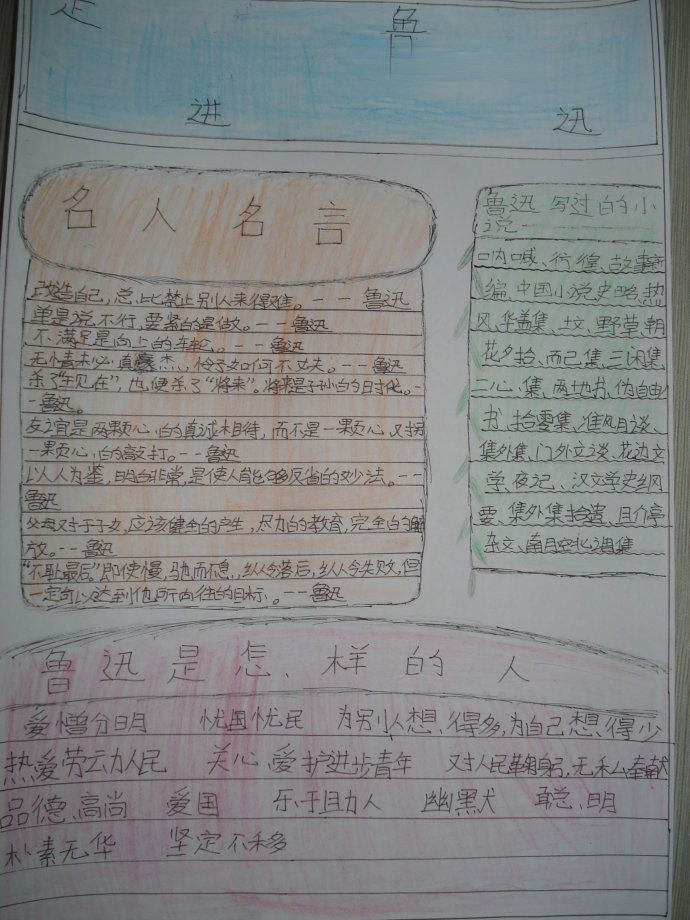 走 鲁
进 迅
名人名言
改造自己,总比禁止别人来得难。--鲁迅
单是说不行,要紧的是做。--鲁迅
不满足是向上的车轮。--鲁迅
无情未必真豪杰,怜子如何不丈夫。--鲁迅
杀了“现在”,也便杀了“将来”。将来是子孙的时代。--
鲁迅。
友谊是两颗心的真诚相待,而不是一颗心对另
一颗心的敲打。--鲁迅
以人为鉴,明白非常,是使人能够反省的妙法。--
鲁迅
父母对于子女,应该健全的产生,尽力的教育,完全的解
放。--鲁迅
“不耻最后”即使慢,驰而不息,纵令落后,纵令失败,但
一定可以达到他所向往的目标。--鲁迅
鲁迅写过的小
说
呐喊、彷徨、故事新
编、中国小说史略、热
风、华盖集、坟、野草、朝
花夕拾、而已集、三闲集、
二心集、两地书、伪自由
书、拾零集、准风月谈、
集外集、门外文谈、花边文
学、夜记、汉文学史纲
要、集外集拾遗、且介亭
杂文、南腔北调集
鲁迅是怎样的人
爱憎分明 忧国忧民 为别人想得多,为自己想得少
热爱劳动人民 关心、爱护进步青年 对人民鞠躬,无私奉献
品德高尚 爱国 乐于助人 幽默 聪明
朴素无华 坚定不移